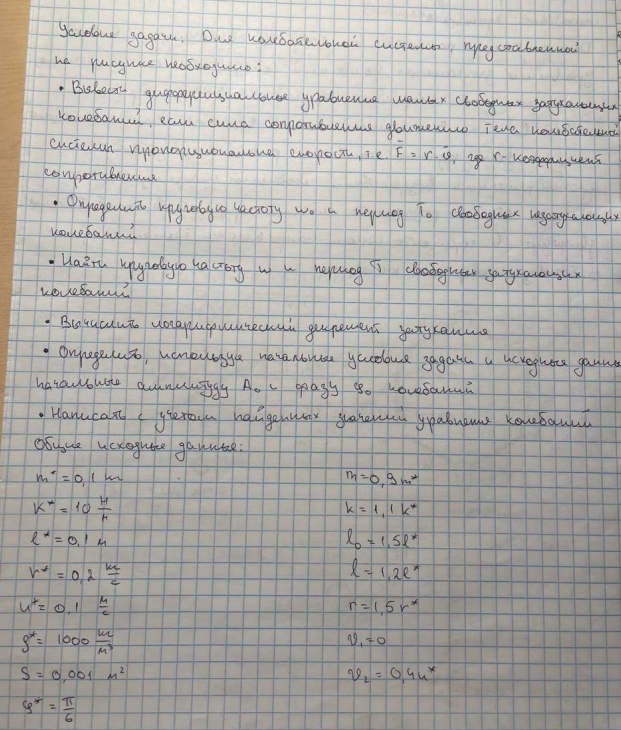 Условие задачи. Для колебательной системы, представленной
на рисунке необходимо:
• Вывести дифференциальное уравнение малых свободных затухающих
колебаний, если сила сопротивления движению тела колебательной
системы пропорциональна скорости, т.е. F⃗ = r·v⃗, где r - коэффициент
сопротивления
• Определить круговую частоту ω₀ и период T₀ свободных незатухающих
колебаний
• Найти круговую частоту ω и период T свободных затухающих
колебаний
• Вычислить логарифмический декремент затухания
• Определить, используя начальные условия задачи и исходные данны
начальные амплитуду A₀ и фазу φ₀ колебаний
• Написать с учетом найденных значений уравнения колебаний
Общие исходные данные:
m* = 0,1 кг
m = 0,9 m*
k* = 10 Н/м
k = 1,1 k*
l* = 0,1 м
l₀ = 1,5 l*
r* = 0,2 кг/с
l = 1,2 l*
u* = 0,1 м/с
r = 1,5 r*
ρ* = 1000 кг/м³
v₁ = 0
S = 0,001 м²
v₂ = 0,4 u*
φ* = π/6